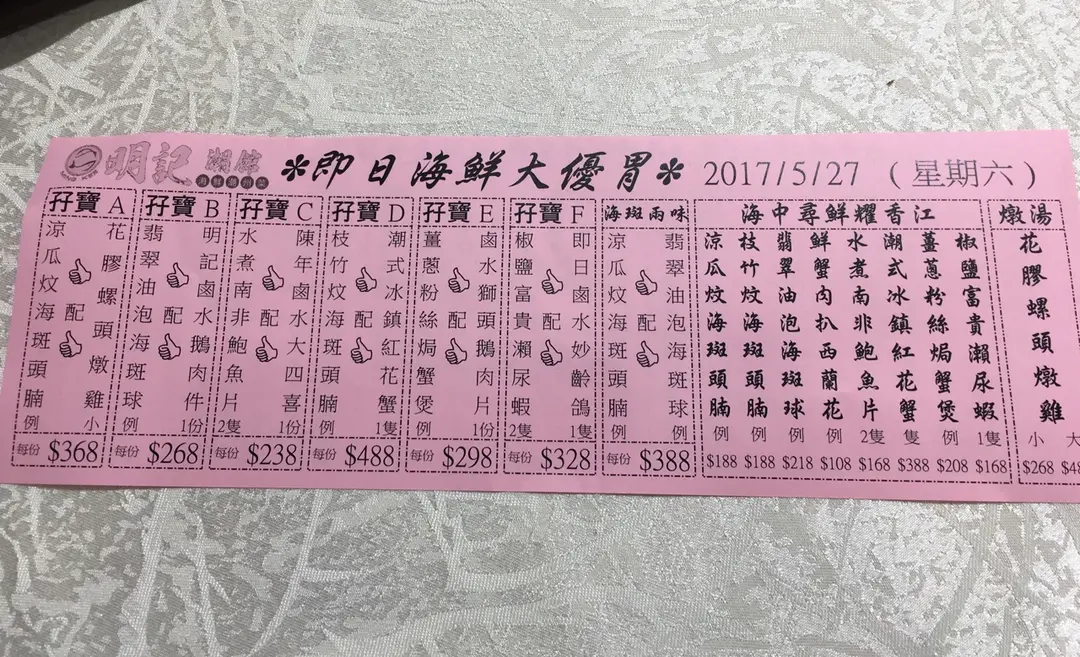 明記 潮館
*即日海鮮大優胃*
2017/5/27 (星期六)
孖寶 A
花膠螺頭燉雞 小
配
涼瓜炆海斑頭腩 例
每份 $368
孖寶 B
明記鹵水鵝肉件 1份
配
翡翠油泡海斑球 例
每份 $268
孖寶 C
陳年鹵水大四喜 1份
配
水煮南非鮑魚片 2隻
每份 $238
孖寶 D
潮式冰鎮紅花蟹 1隻
配
枝竹炆海斑頭腩 例
每份 $488
孖寶 E
鹵水獅頭鵝肉片 1份
配
薑蔥粉絲焗蟹煲 例
每份 $298
孖寶 F
即日鹵水妙齡鴿 1隻
配
椒鹽富貴瀨尿蝦 2隻
每份 $328
海斑兩味
翡翠油泡海斑球 例
配
涼瓜炆海斑頭腩 例
每份 $388
海中尋鮮耀香江
涼瓜炆海斑頭腩 例 $188
枝竹炆海斑頭腩 例 $188
翡翠油泡海斑球 例 $218
鮮蟹肉扒西蘭花 例 $108
水煮南非鮑魚片 2隻 $168
潮式冰鎮紅花蟹 隻 $388
薑蔥粉絲焗蟹煲 例 $208
椒鹽富貴瀨尿蝦 1隻 $168
燉湯
花膠螺頭燉雞
小 大
$268